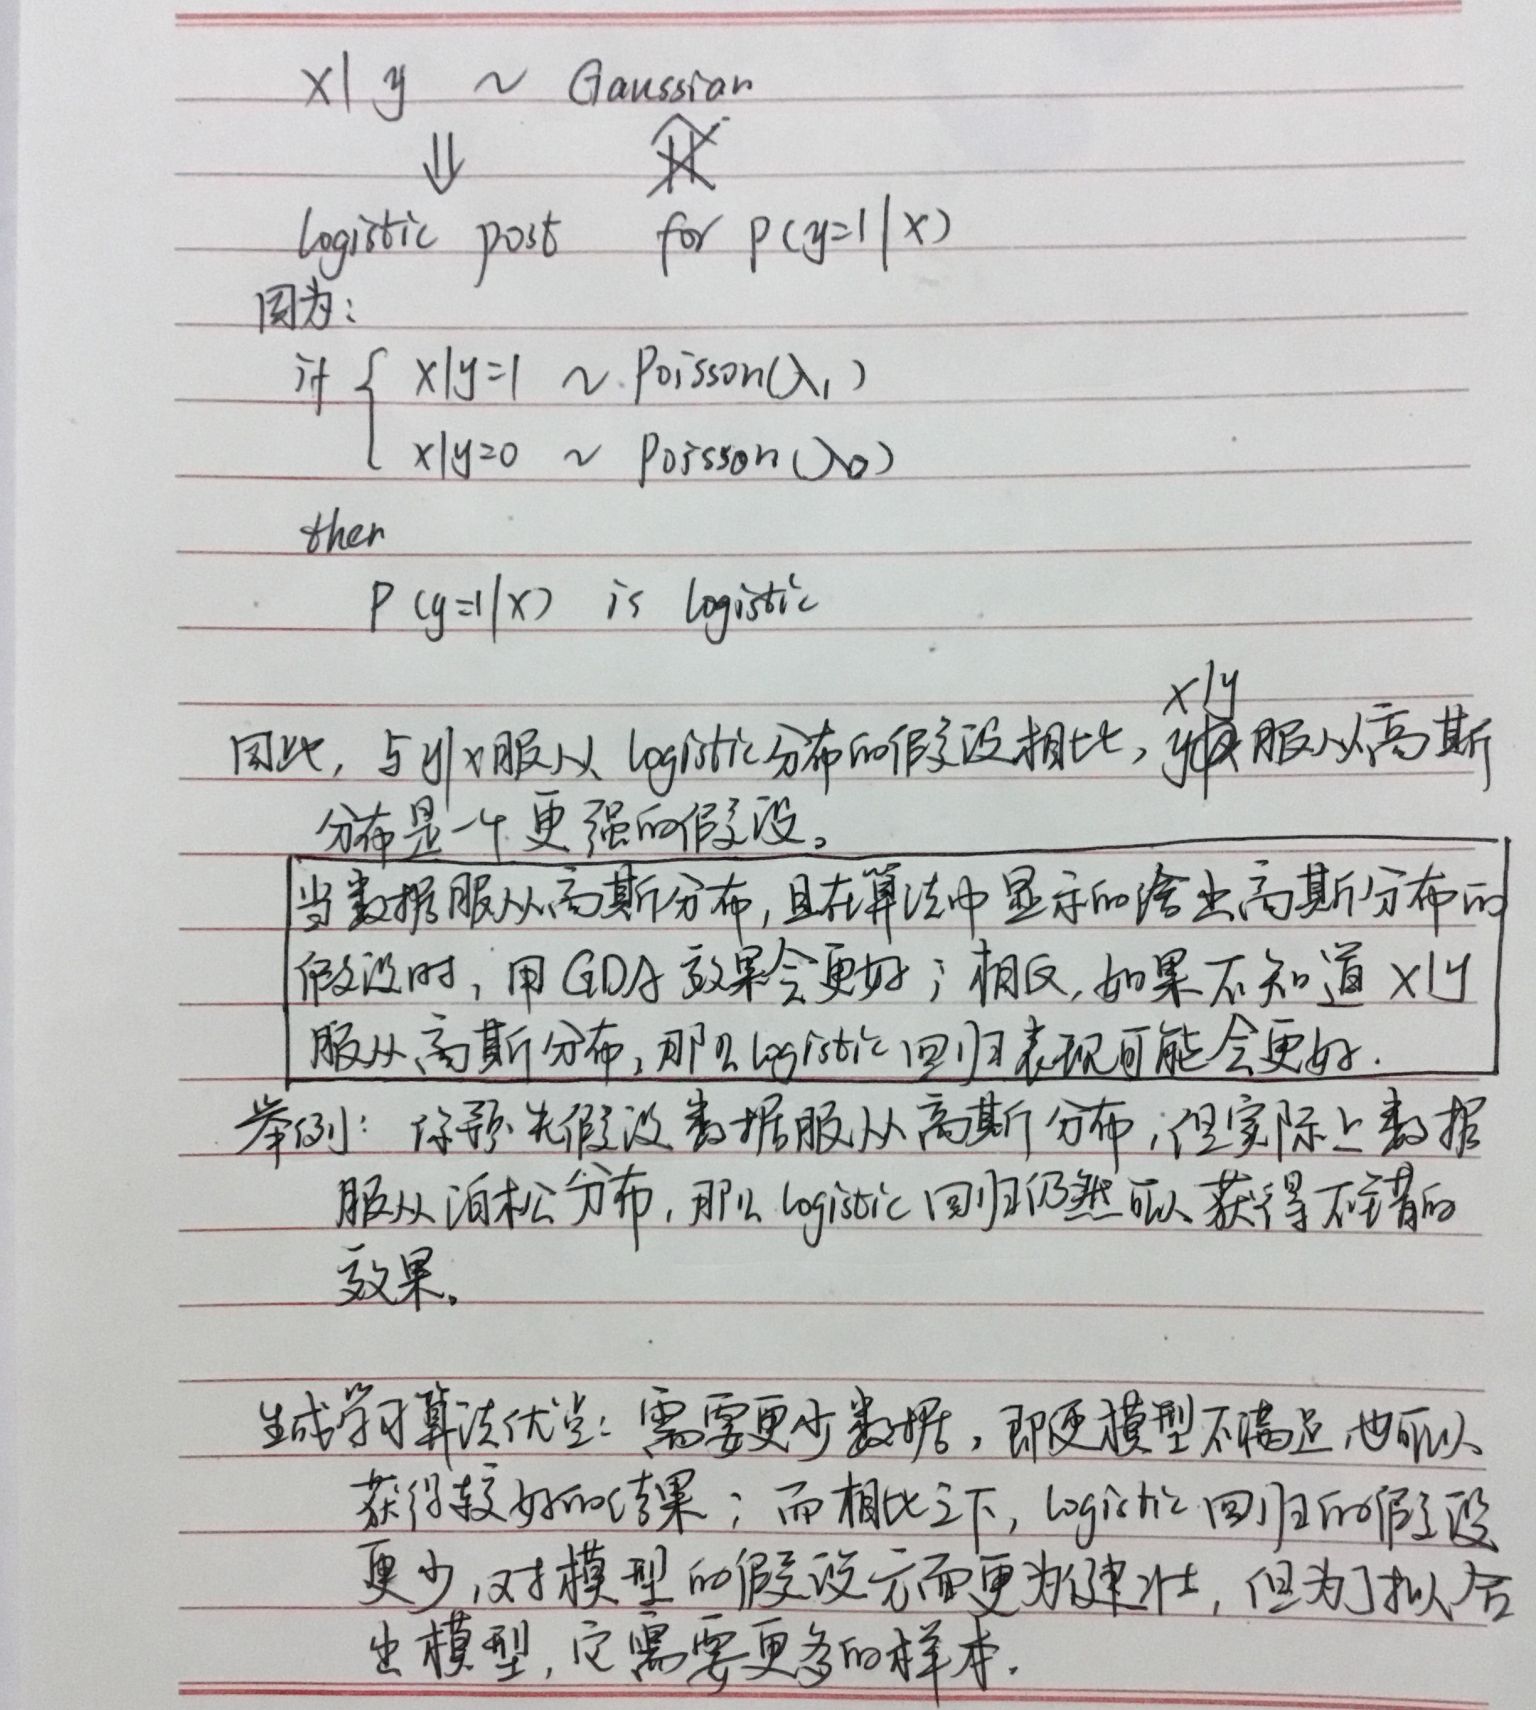 x|y ~ Gaussian
⇓ ⇑
logistic post for p(y=1|x)
因为:
if { x|y=1 ~ Poisson(λ₁)
x|y=0 ~ Poisson(λ₀)
then
P(y=1|x) is logistic
x|y
因此,与y|x服从logistic分布的假设相比,服从高斯
分布是一个更强的假设。
当数据服从高斯分布,且在算法中显示的给出高斯分布的
假设时,用GDA效果会更好;相反,如果不知道x|y
服从高斯分布,那么logistic回归表现可能会更好.
举例:你预先假设数据服从高斯分布,但实际上数据
服从泊松分布,那么logistic回归仍然可以获得不错的
效果。
生成学习算法优点:需要更少数据,即便模型不满足,也可以
获得较好的结果;而相比之下,logistic回归的假设
更少,对模型的假设方面更为健壮,但为了拟合
出模型,它需要更多的样本.